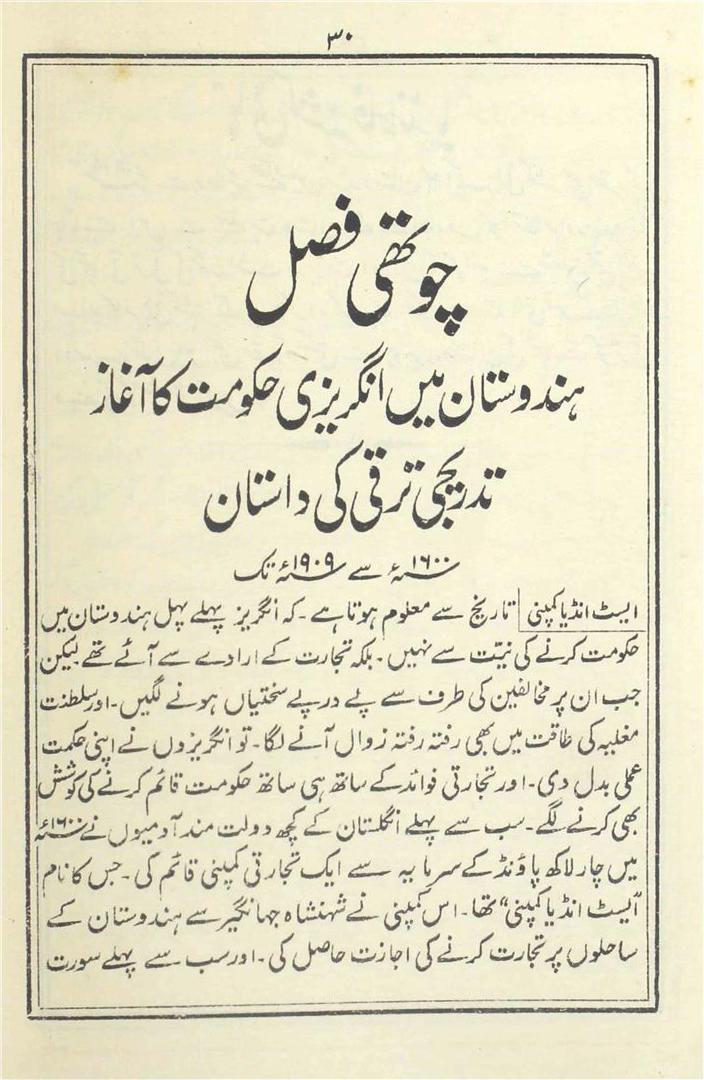 ۳۰
چوتھی فصل
ہندوستان میں انگریزی حکومت کا آغاز
تدریجی ترقی کی داستان
۱۶۰۰ء سے ۱۹۰۹ء تک
ایسٹ انڈیا کمپنی تاریخ سے معلوم ہوتا ہے۔ کہ انگریز پہلے پہل ہندوستان میں
حکومت کرنے کی نیّت سے نہیں۔ بلکہ تجارت کے ارادے سے آئے تھے لیکن
جب ان پر مخالفین کی طرف سے پے در پے سختیاں ہونے لگیں۔ اور سلطنت
مغلیہ کی طاقت میں بھی رفتہ رفتہ زوال آنے لگا۔ تو انگریزوں نے اپنی حکمت
عملی بدل دی۔ اور تجارتی فوائد کے ساتھ ہی ساتھ حکومت قائم کرنے کی کوشش
بھی کرنے لگے۔ سب سے پہلے انگلستان کے کچھ دولت مند آدمیوں نے ۱۶۰۰ء
میں چار لاکھ پاؤنڈ کے سرمایہ سے ایک تجارتی کمپنی قائم کی۔ جس کا نام
"ایسٹ انڈیا کمپنی" تھا۔ اس کمپنی نے شہنشاہ جہانگیر سے ہندوستان کے
ساحلوں پر تجارت کرنے کی اجازت حاصل کی۔ اور سب سے پہلے سورت